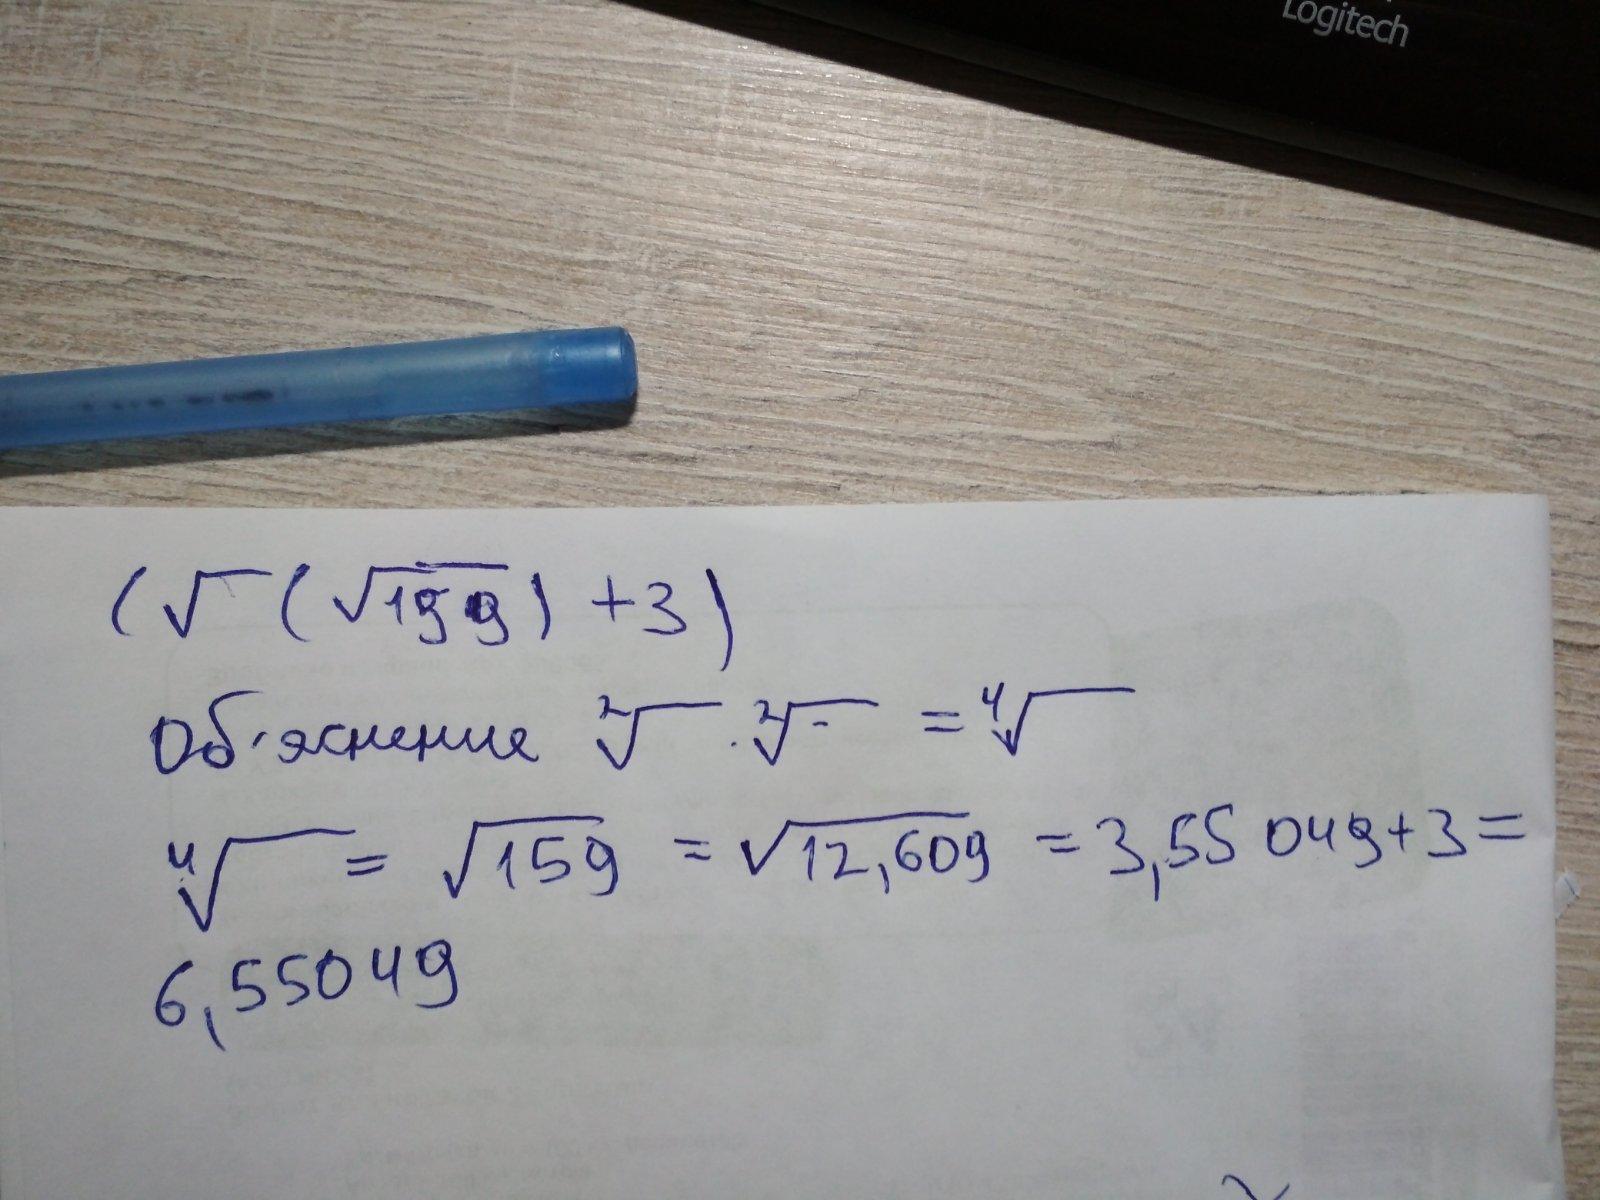 Logitech
(√ (√199) + 3)
Об'яснение ²√ · ²√- = ⁴√
⁴√ = √159 = √12,609 = 3,55 049 + 3 =
6,55049